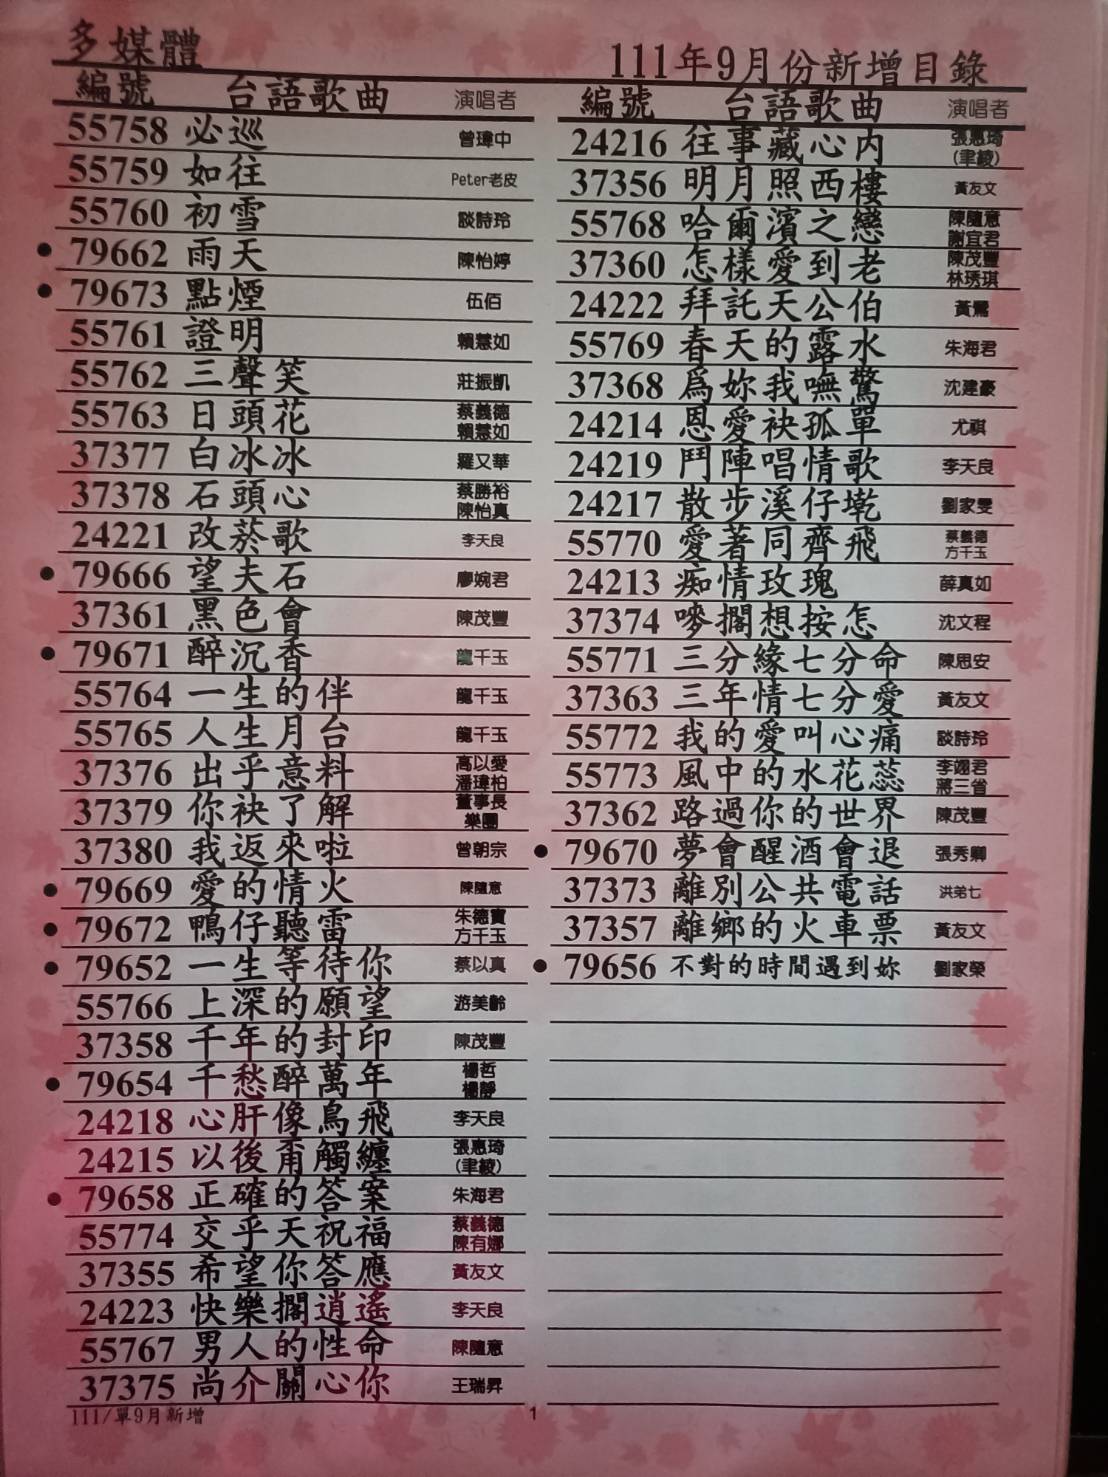 多媒體
111年9月份新增目錄
編號 台語歌曲 演唱者
55758 必巡 曾瑋中
55759 如往 Peter老皮
55760 初雪 談詩玲
● 79662 雨天 陳怡婷
● 79673 點煙 伍佰
55761 證明 賴慧如
55762 三聲笑 莊振凱
55763 日頭花 蔡義德 賴慧如
37377 白冰冰 羅文華
37378 石頭心 蔡勝裕 陳怡真
24221 改菸歌 李天良
● 79666 望夫石 廖婉君
37361 黑色會 陳茂豐
● 79671 醉沉香 龍千玉
55764 一生的伴 龍千玉
55765 人生月台 龍千玉
37376 出乎意料 高以愛 潘瑋柏
37379 你袂了解 董事長樂團
37380 我返來啦 曾朝宗
● 79669 愛的情火 陳隨意
● 79672 鴨仔聽雷 朱德寶 方千玉
● 79652 一生等待你 蔡以真
55766 上深的願望 游美齡
37358 千年的封印 陳茂豐
● 79654 千愁醉萬年 楊哲 楊靜
24218 心肝像鳥飛 李天良
24215 以後甭觸纏 張惠琦(聿綾)
● 79658 正確的答案 朱海君
55774 交乎天祝福 蔡義德 陳有娜
37355 希望你答應 黃友文
24223 快樂擱逍遙 李天良
55767 男人的性命 陳隨意
37375 尚介關心你 王瑞昇
編號 台語歌曲 演唱者
24216 往事藏心內 張惠琦(聿綾)
37356 明月照西樓 黃友文
55768 哈爾濱之戀 陳隨意 謝宜君
37360 怎樣愛到老 陳茂豐 林琇琪
24222 拜託天公伯 黃鶯
55769 春天的露水 朱海君
37368 為妳我嘸驚 沈建豪
24214 恩愛袂孤單 尤祺
24219 鬥陣唱情歌 李天良
24217 散步溪仔墘 劉家雯
55770 愛著同齊飛 蔡義德 方千玉
24213 痴情玫瑰 薛真如
37374 嘜擱想按怎 沈文程
55771 三分緣七分命 陳思安
37363 三年情七分愛 黃友文
55772 我的愛叫心痛 談詩玲
55773 風中的水花蕊 李翊君 蔣三省
37362 路過你的世界 陳茂豐
● 79670 夢會醒酒會退 張秀卿
37373 離別公共電話 洪弟七
37357 離鄉的火車票 黃友文
● 79656 不對的時間遇到妳 劉家榮
111/單9月新增
1